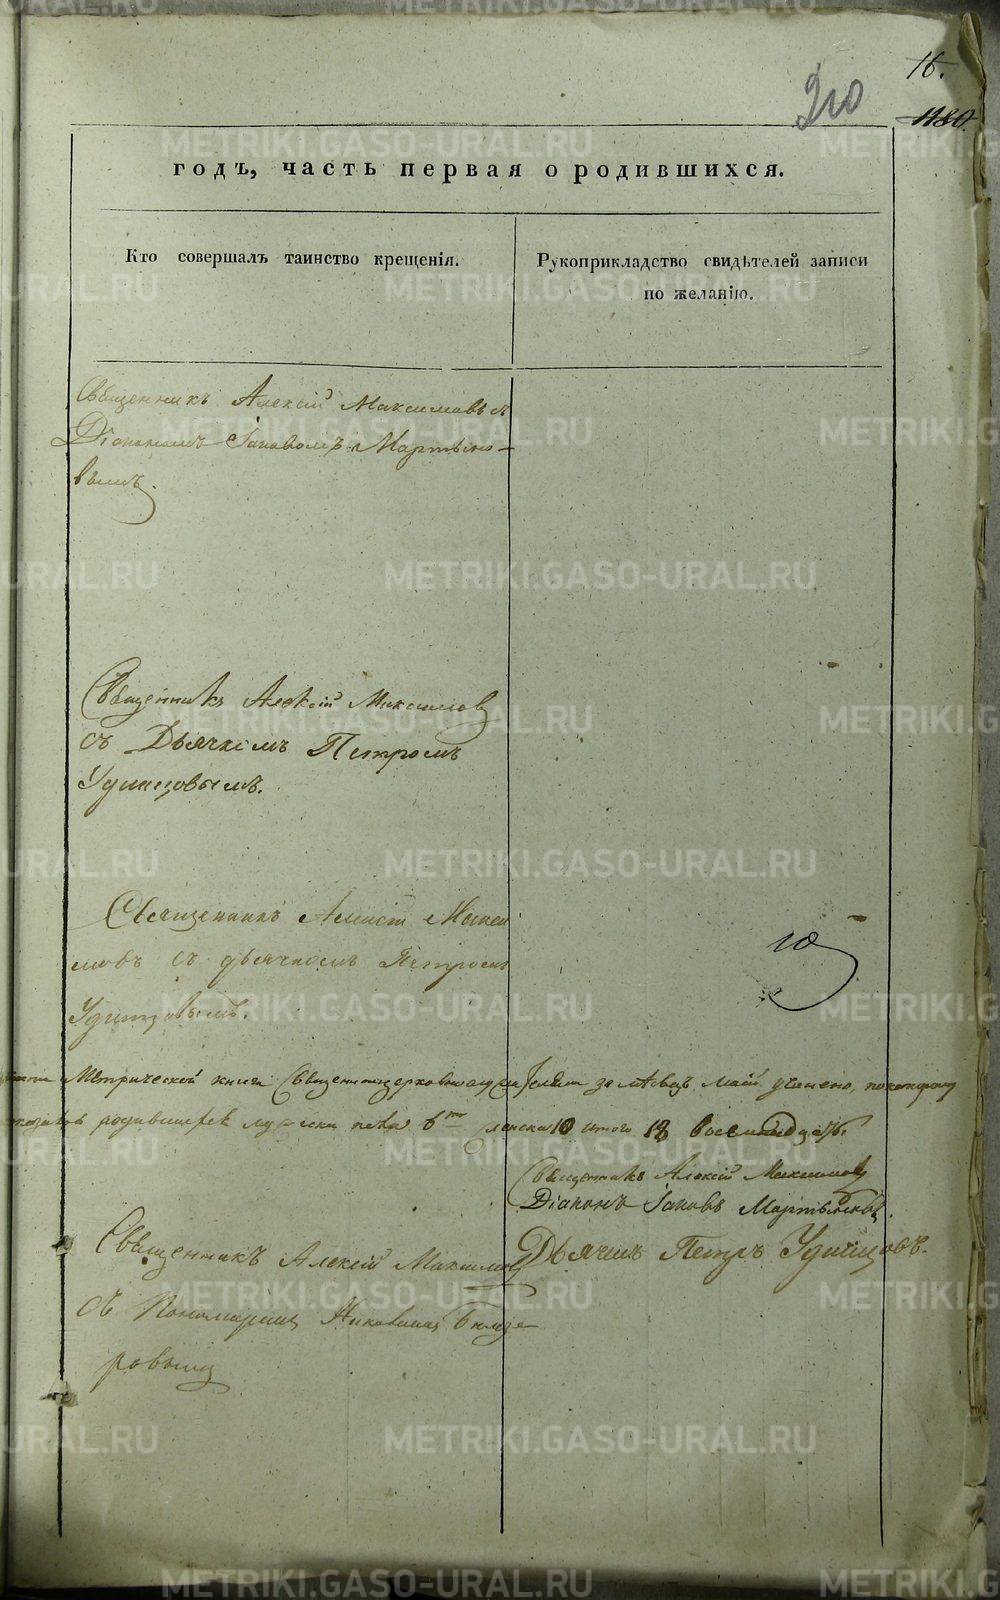 16.
210
1180.
годъ, часть первая о родившихся.
Кто совершалъ таинство крещенія.
Рукоприкладство свидѣтелей записи
по желанію.
Священникъ Алексій Максимовъ съ
Діакономъ Іаковомъ Мартыно-
вымъ.
Священникъ Алексій Максимов
съ Дьячкомъ Петромъ
Удинцовымъ.
Священникъ Алексій Макси
мовъ съ дьячкомъ Петромъ
Удинцовымъ.
Метрической книги Священноцерковнослужителями за мѣсяцъ май учинено, по которому
родившихся мужеска пола 8 женска 10 итого 18 восемнадцать.
Священникъ Алексій Максимовъ
Діаконъ Іаковъ Мартыновъ.
Дьячекъ Петръ Удинцовъ.
Священникъ Алексій Максимов
съ Пономаремъ
ровымъ
METRIKI.GASO-URAL.RU